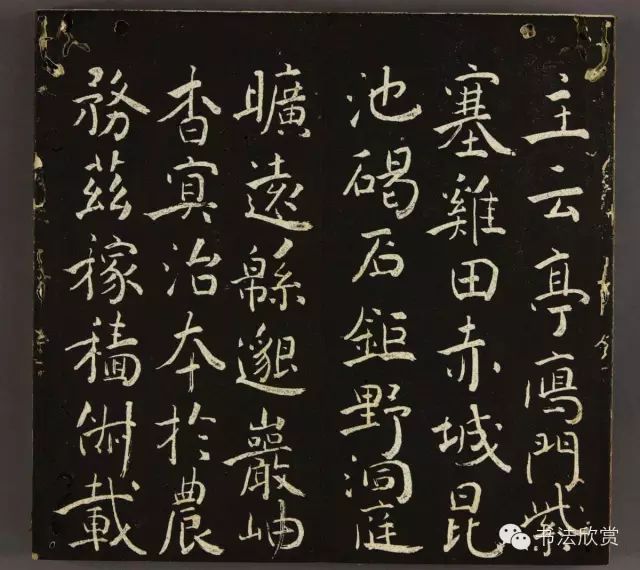 主云亭鴈門紫
塞雞田赤城昆
池碣石鉅野洞庭
曠遠緜邈巖岫
杳冥治本於農
務茲稼穡俶載
书法欣赏